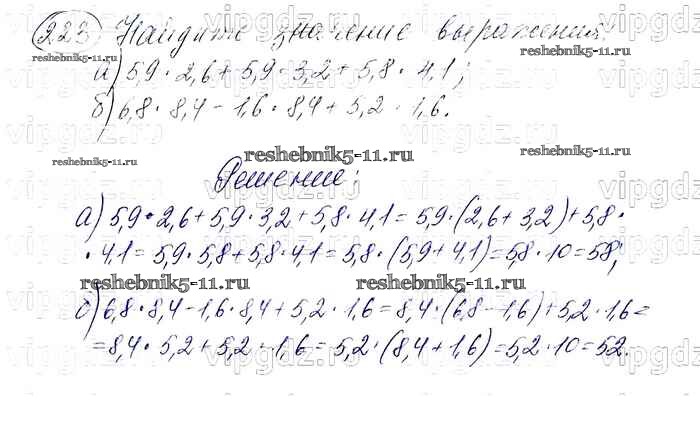 223 Найдите значение выражения:
а) 5,9 · 2,6 + 5,9 · 3,2 + 5,8 · 4,1;
б) 6,8 · 8,4 - 1,6 · 8,4 + 5,2 · 1,6.
Решение:
а) 5,9 · 2,6 + 5,9 · 3,2 + 5,8 · 4,1 = 5,9 · (2,6 + 3,2) + 5,8 ·
· 4,1 = 5,9 · 5,8 + 5,8 · 4,1 = 5,8 · (5,9 + 4,1) = 5,8 · 10 = 58;
б) 6,8 · 8,4 - 1,6 · 8,4 + 5,2 · 1,6 = 8,4 · (6,8 - 1,6) + 5,2 · 1,6 =
= 8,4 · 5,2 + 5,2 · 1,6 = 5,2 · (8,4 + 1,6) = 5,2 · 10 = 52.
reshebnik5-11.ru
reshebnik5-11.ru
reshebnik5-11.ru
reshebnik5-11.ru
reshebnik5-11.ru
reshebnik5-11.ru
vipgdz.ru